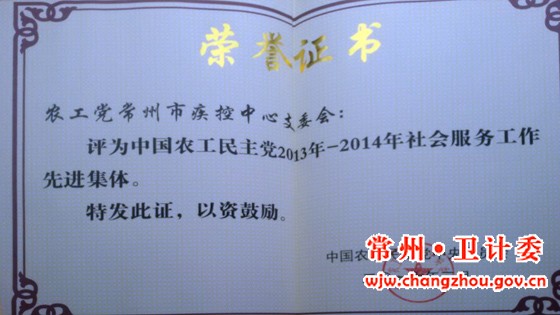 荣誉证书
农工党常州市疾控中心支委会：
评为中国农工民主党2013年-2014年社会服务工作
先进集体。
特发此证，以资鼓励。
中国农
常州·卫计委
wjw.changzhou.gov.cn